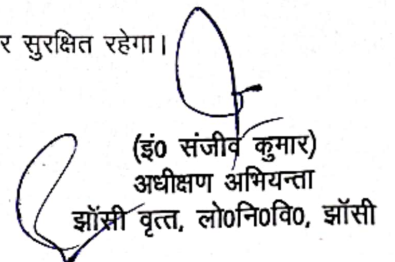 र सुरक्षित रहेगा।
(इं0 संजीव कुमार)
अधीक्षण अभियन्ता
झॉसी वृत्त, लो0नि0वि0, झॉसी